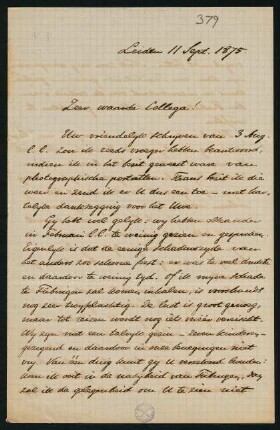 379
Leiden 11 Sept. 1875
Zeer waarde Collega!
Uw vriendelijk schrijven van 3 Aug
l.l. zou ik reeds vroeger hebben beantwoord,
indien ik in het bezit geweest ware van
photographische portretten. Thans heb ik die
weer en zend ik er U dus een toe — met har-
telijke dankzegging voor het Uwe.
Gij hebt wel gelijk: wij hebben elkander
in l.l. te weinig gezien en gesproken.
Eigenlijk is dat de eenige schaduwzijde van
het anders zoo feest: er was te veel drukte
en daardoor te weinig tijd. Of ik mijne schade
te Tubingen zal komen inhalen, is voorshands
nog zeer twijfelachtig. De lust is groot genoeg,
maar tot reizen wordt nog al vereischt.
Wij zijn met een talrijk gezin — zeven kinderen,
gezegend en daardoor in onze bewegingen niet
vrij. Van één ding kunt gij U overtuigd houden:
kom ik ooit in de nabijheid van Tubingen, dan
zal ik de gelegenheid om U te zien niet